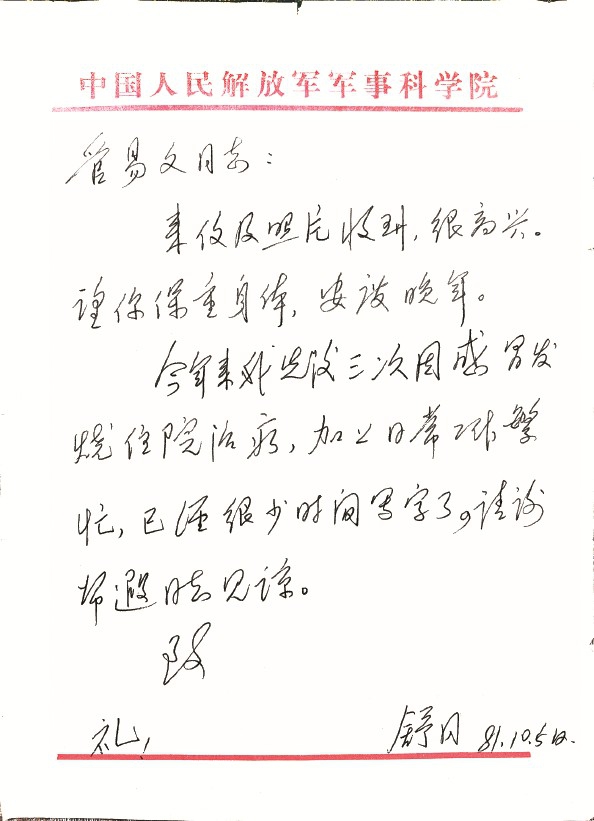 中国人民解放军军事科学院
管易文同志：
来信及照片收到，很高兴。
望你保重身体，安度晚年。
今年来我先后三次因感冒发
烧住院治疗，加上日常工作繁
忙，已经很少时间写字了。请谢
遐同志见谅。
致
礼！
舒同 81.10.5日.